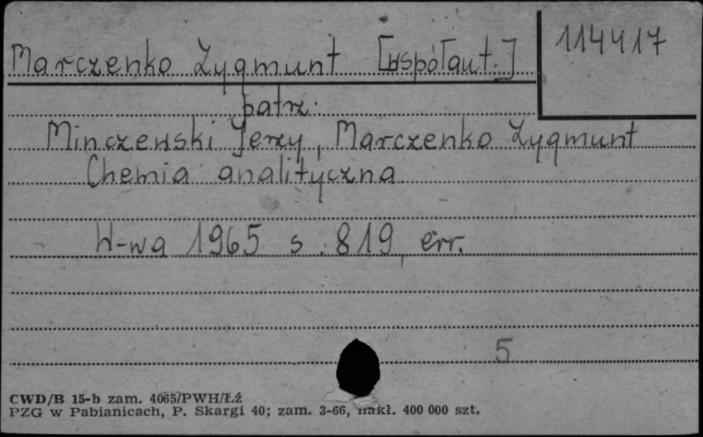 Marczenko Zygmunt [współaut.]
114417
patrz:
Minczewski Jerzy, Marczenko Zygmunt
Chemia analityczna
W-wa 1965 s. 819, err.
5
CWD/B 15-b zam. 4065/PWH/Łź
PZG w Pabianicach, P. Skargi 40; zam. 3-66, nakł. 400 000 szt.